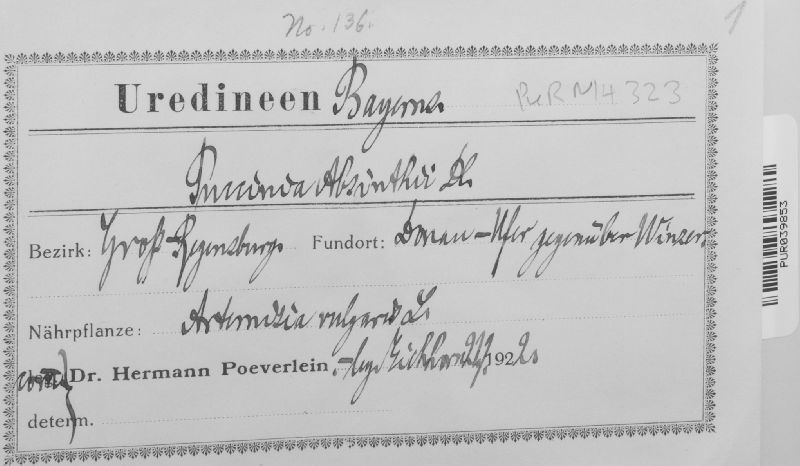 No. 136.
1
Uredineen Bayerns.
PUR N14323
Puccinia Absinthii DC.
Bezirk: Groß-Regensburg. Fundort: Donau-Ufer gegenüber Winzer.
Nährpflanze: Artemisia vulgaris L.
Dr. Hermann Poeverlein. 1922.
determ.
PUR039853